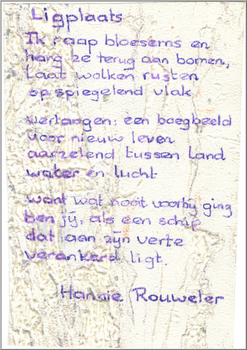 Ligplaats
Ik raap bloesems en
hang ze terug aan bomen,
laat wolken rusten
op spiegelend vlak
verlangen: een boegbeeld
voor nieuw leven
aarzelend tussen land
water en lucht
want wat nooit voorbij ging
ben jij, als een schip
dat aan zijn verte
verankerd ligt.
Hannie Rouweler